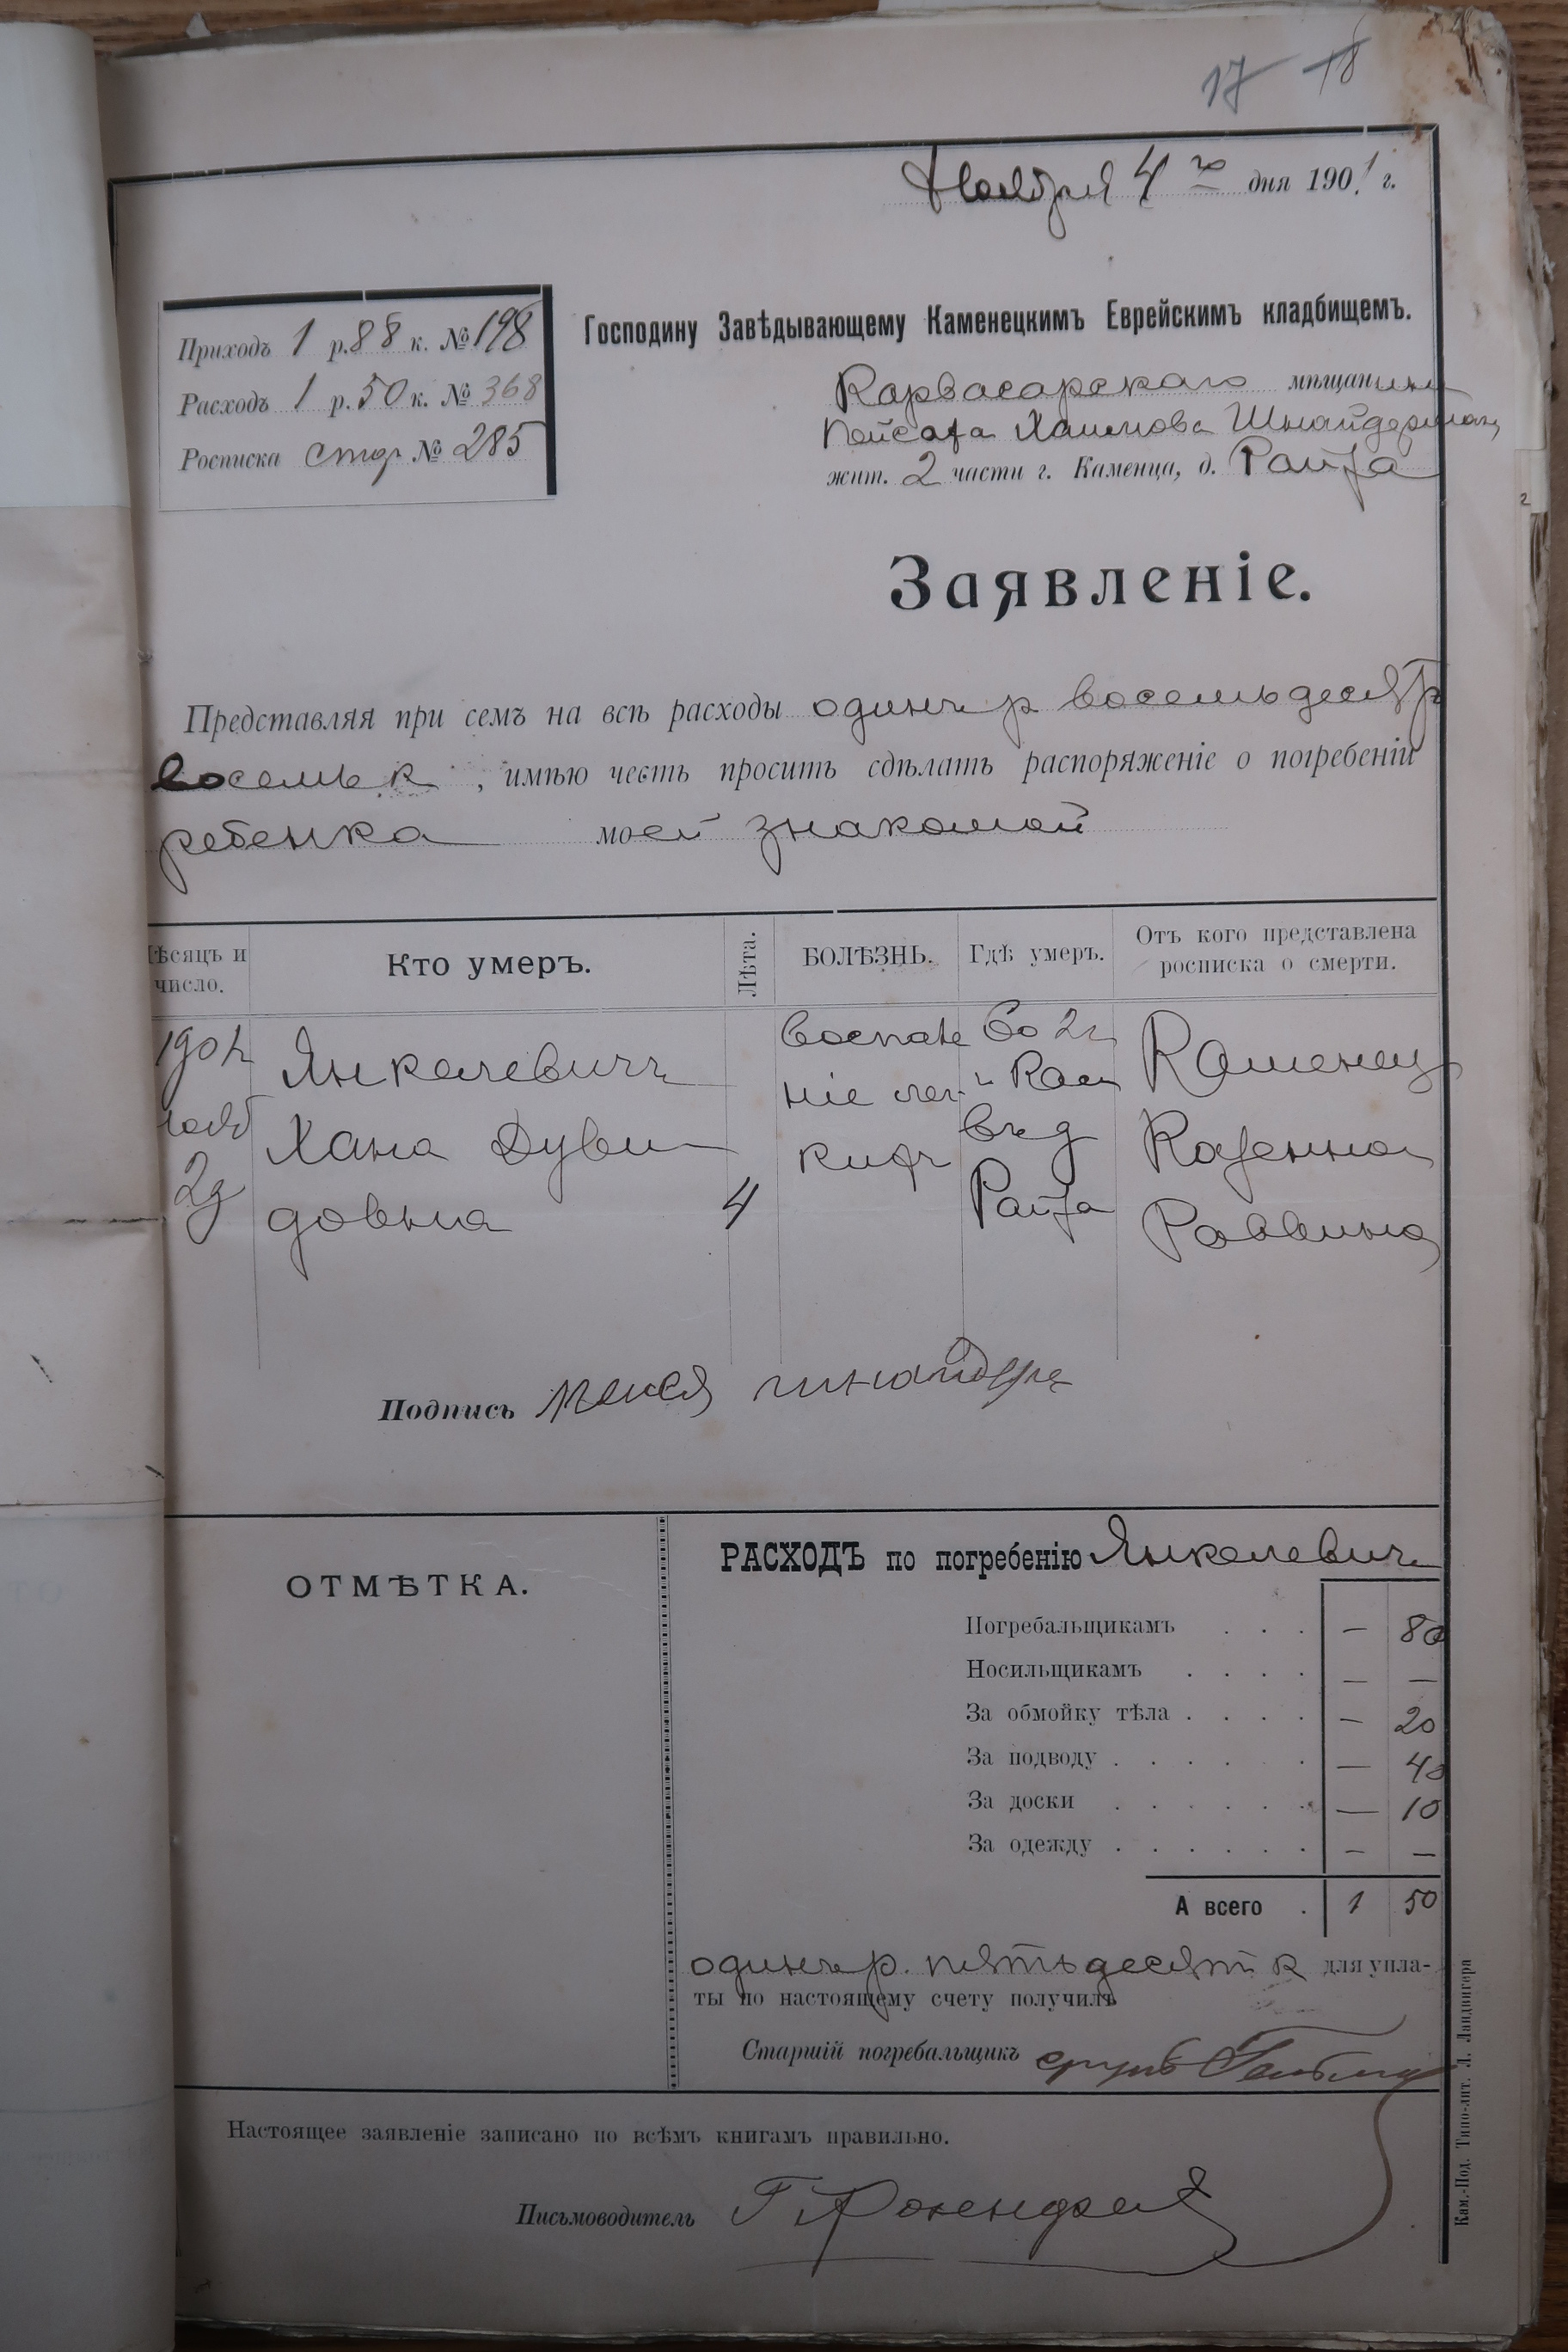 17 18
Ноября 4 го дня 1901 г.
Приходъ 1 р. 88 к. № 198
Расходъ 1 р. 50 к. № 368
Росписка стар № 285
Господину Завѣдывающему Каменецкимъ Еврейскимъ кладбищемъ.
Карвасарскаго мѣщанина
Пейсаха Хаимова Шнайдермана
жит. 2 части г. Каменца, д. Райза
Заявленіе.
Представляя при семъ на всѣ расходы одинъ р восемьдесятъ
восемь к, имѣю честь просить сдѣлать распоряженіе о погребеніи
ребенка моей знакомой
Мѣсяцъ и число. Кто умеръ. Лѣта. БОЛѢЗНЬ. Гдѣ умеръ. Отъ кого представлена росписка о смерти.
1901 Янкелевичъ воспале во 2 ч Каменец
нояб Хана Дуви ніе лег г Кам Казенна
2 д довна 4 кихъ въ д Раввина
Райза
Подпись шнайдер
ОТМѢТКА.
РАСХОДЪ по погребенію Янкелевичъ
Погребальщикамъ . . . — 80
Носильщикамъ . . . . — —
За обмойку тѣла . . . . — 20
За подводу . . . . . — 40
За доски . . . . . . — 10
За одежду . . . . . . — —
А всего . 1 50
одинъ р. пятьдесятъ к для упла-
ты по настоящему счету получилъ
Старшій погребальщикъ
Настоящее заявленіе записано по всѣмъ книгамъ правильно.
Письмоводитель
Кам.-Под. Типо-лит. Л. Ландвигера